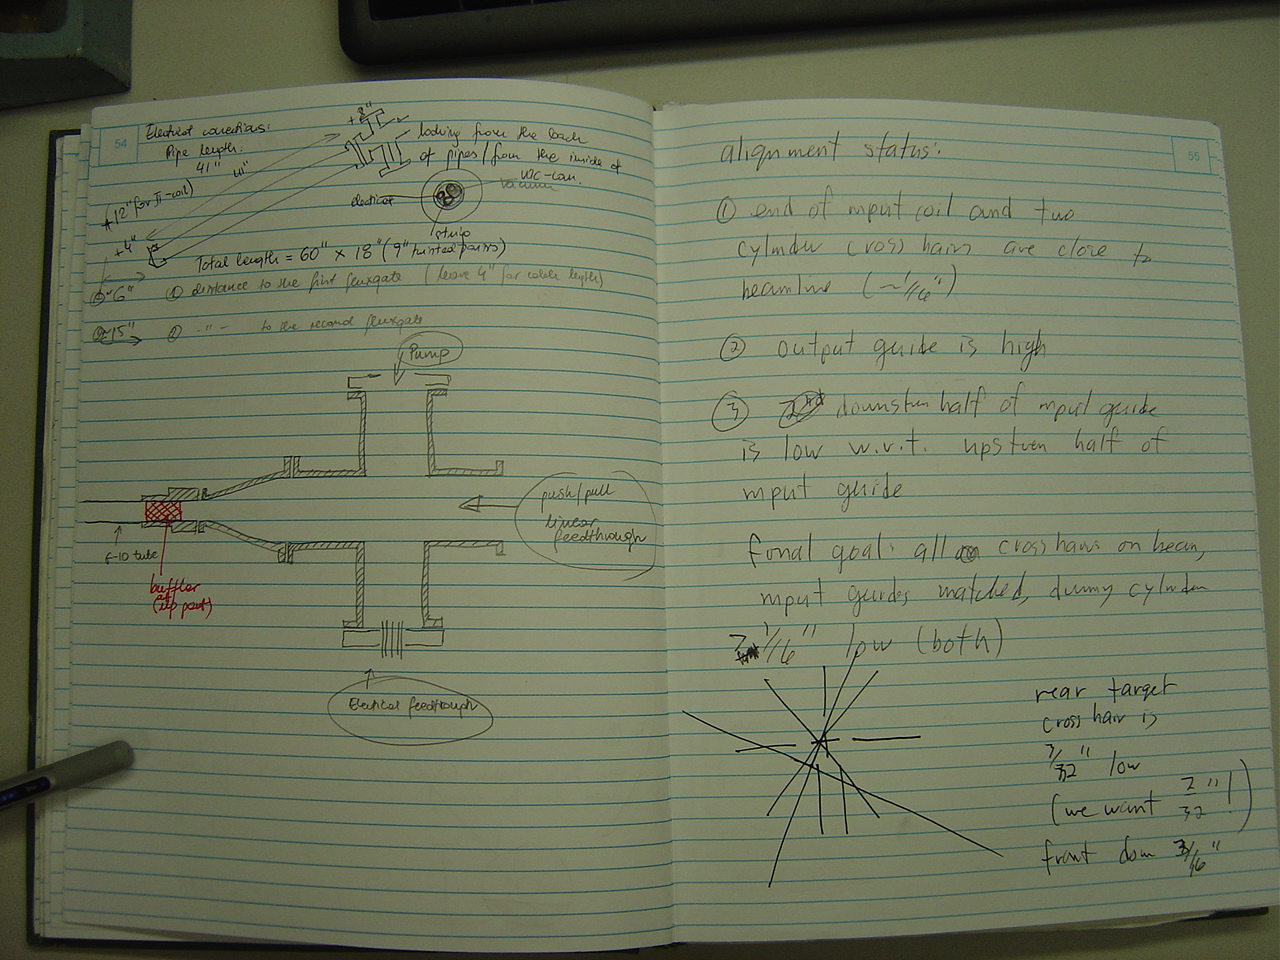 54
Electrical connections:
Pipe length:
41"
41"
+8"
+12" (for π-coil)
+4"
looking from the back
of pipes/from the inside of
vac-can.
vacuum
electrical
strip
Total length = 60" × 18" (9" twisted pairs)
① ~6" ① distance to the first fluxgate (leave 4" for cable length)
② ~15" ② -"- to the second fluxgate
Pump
push/pull
linear
feedthrough
G-10 tube
buffler
Electrical feedthrough
55
alignment status:
① end of input coil and two
cylinder cross hairs are close to
beamline (~1/16")
② output guide is high
③ downstrm half of input guide
is low w.r.t. upstrem half of
input guide
final goal: all cross hairs on beam,
input guides matched, dummy cylinder
1/16" low (both)
rear target
cross hair is
7/32" low
(we want 2/32"!)
front down 3/16"